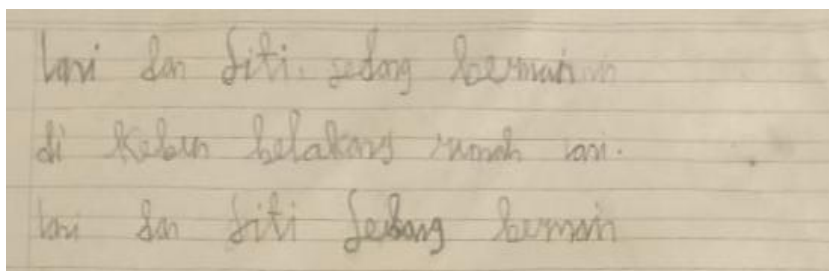 Lani dan Siti. sedang bermain
di Kebun belakang rumah Lani.
Lani dan Siti Sedang bermain